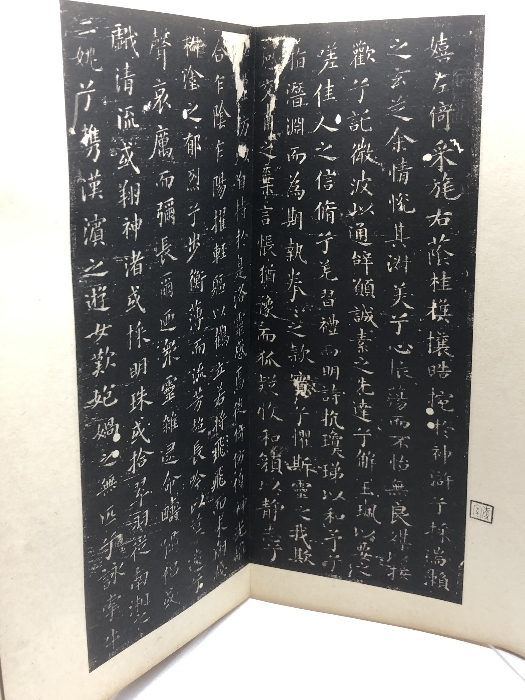 嬉左倚采旄右蔭桂旗攘皓捥於神滸兮採湍瀨
之玄芝余情悅其淑美兮心振蕩而不怡無良媒以接
歡兮託微波以通辭願誠素之先達兮解玉珮以要之
嗟佳人之信脩兮羌習禮而明詩抗瓊珶以和予兮
指潛淵而為期執拳拳之款實兮懼斯靈之我欺
交甫之棄言悵猶豫而狐疑收和顏以靜志兮
防以自持於是洛靈感焉徙倚仿偟神光離
合乍陰乍陽擢輕軀以鶴立若將飛而未翔踐
椒塗之郁烈兮步衡薄而流芳超長吟以慕遠兮
聲哀厲而彌長爾迺眾靈雜遝命疇嘯侶或
戲清流或翔神渚或採明珠或拾翠羽從南湘之
二妃兮攜漢濱之遊女歎匏媧之無匹兮詠牽牛